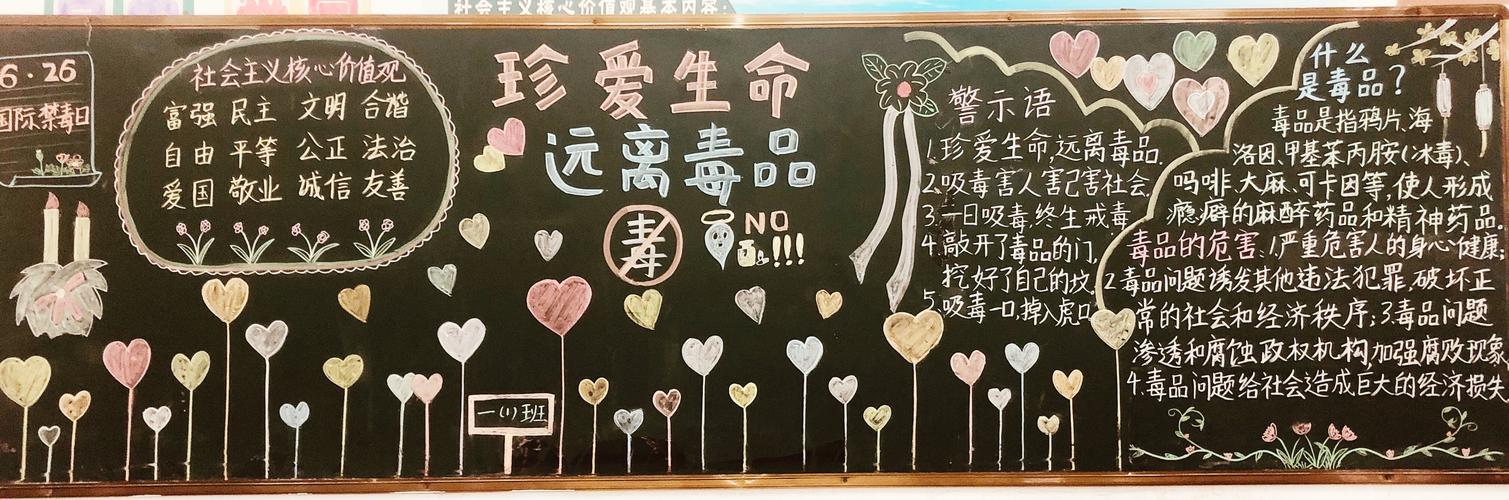 社会主义核心价值观基本内容:
6·26
国际禁毒日
社会主义核心价值观
富强 民主 文明 合谐
自由 平等 公正 法治
爱国 敬业 诚信 友善
珍爱生命
远离毒品
毒
NO
!!!
一(1)班
警示语
1.珍爱生命,远离毒品.
2.吸毒害人害己害社会
3.一日吸毒,终生戒毒
4.敲开了毒品的门,
挖好了自己的坟,
5.吸毒一口,掉入虎口
什么
是毒品?
毒品是指鸦片、海
洛因、甲基苯丙胺(冰毒)、
吗啡、大麻、可卡因等,使人形成
瘾癖的麻醉药品和精神药品.
毒品的危害:1.严重危害人的身心健康;
2.毒品问题诱发其他违法犯罪,破坏正
常的社会和经济秩序;3.毒品问题
渗透和腐蚀政权机构,加强腐败现象
4.毒品问题给社会造成巨大的经济损失